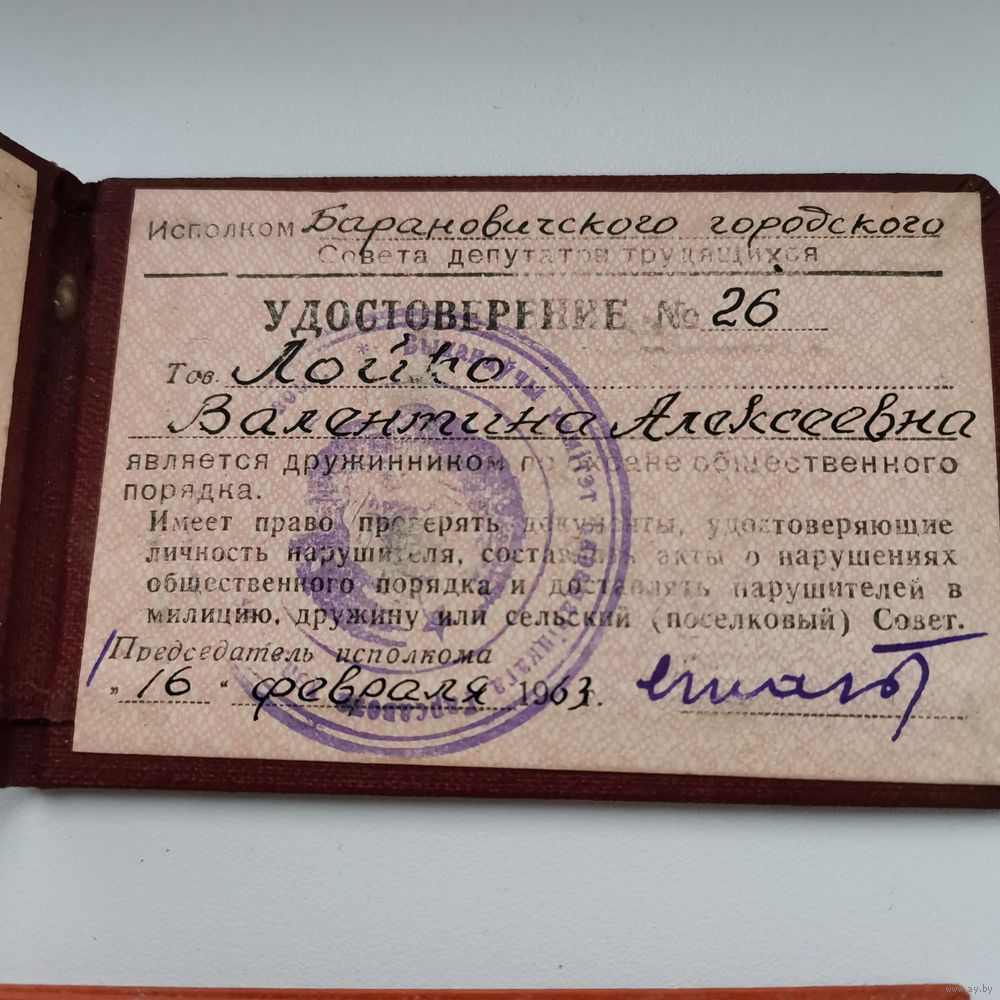 Исполком Барановичского городского
Совета депутатов трудящихся
УДОСТОВЕРЕНИЕ № 26
Тов. Лойко
Валентина Алексеевна
является дружинником по охране общественного
порядка.
Имеет право проверять документы, удостоверяющие
личность нарушителя, составлять акты о нарушениях
общественного порядка и доставлять нарушителей в
милицию, дружину или сельский (поселковый) Совет.
Председатель исполкома
„ 16 “ февраля 1963 г.
Выканаўчы камітэт
www.ay.by